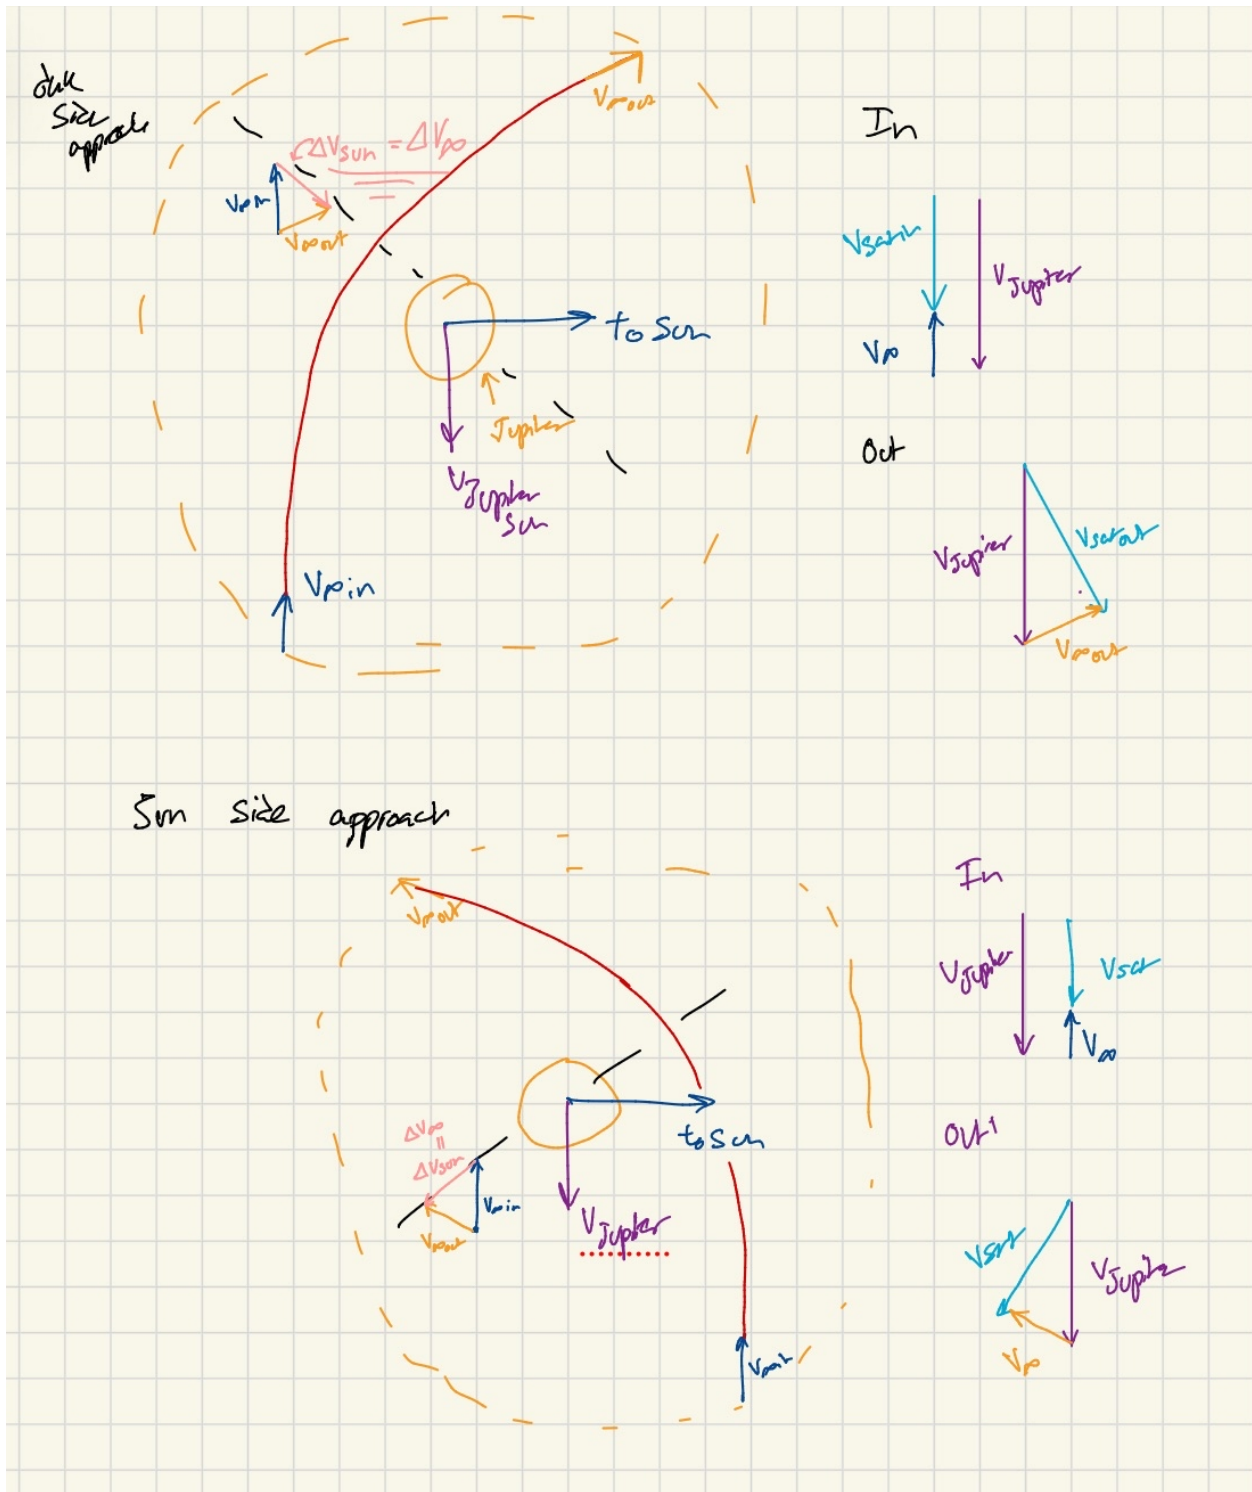 dark
side
approach
V∞out
ΔVsun = ΔV∞
V∞in
V∞out
to Sun
Jupiter
VJupiter
Sun
V∞in
In
Vsatin
VJupiter
V∞
Out
VJupiter
Vsatout
V∞out
Sun side approach
V∞out
to Sun
ΔV∞
=
ΔVsun
V∞in
V∞out
VJupiter
In
VJupiter
Vsat
V∞
Out
Vsat
VJupiter
V∞